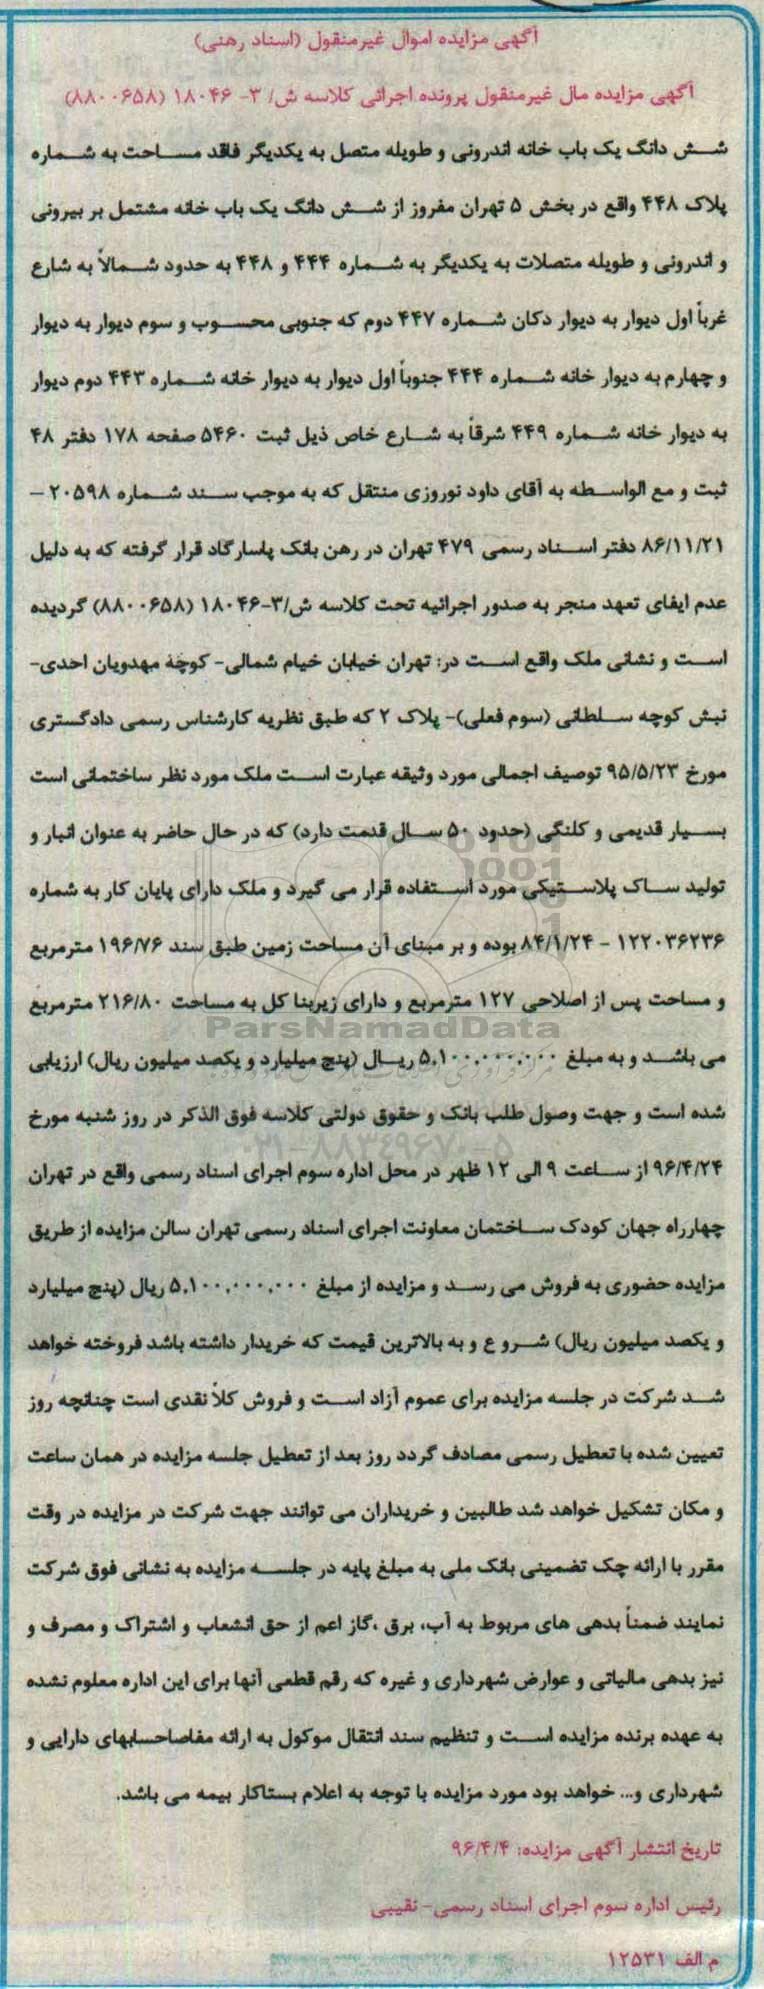 آگهی مزایده اموال غیرمنقول (اسناد رهنی)
آگهی مزایده مال غیرمنقول پرونده اجرائی کلاسه ش/ ۳- ۱۸۰۴۶ (۸۸۰۰۶۵۸)
شش دانگ یک باب خانه اندرونی و طویله متصل به یکدیگر فاقد مساحت به شماره
پلاک ۴۴۸ واقع در بخش ۵ تهران مفروز از شش دانگ یک باب خانه مشتمل بر بیرونی
و اندرونی و طویله متصلات به یکدیگر به شماره ۴۴۴ و ۴۴۸ به حدود شمالاً به شارع
غرباً اول دیوار به دیوار دکان شماره ۴۴۷ دوم که جنوبی محسوب و سوم دیوار به دیوار
و چهارم به دیوار خانه شماره ۴۴۴ جنوباً اول دیوار به دیوار خانه شماره ۴۴۳ دوم دیوار
به دیوار خانه شماره ۴۴۹ شرقاً به شارع خاص ذیل ثبت ۵۴۶۰ صفحه ۱۷۸ دفتر ۴۸
ثبت و مع الواسطه به آقای داود نوروزی منتقل که به موجب سند شماره ۲۰۵۹۸ –
۸۶/۱۱/۲۱ دفتر اسناد رسمی ۴۷۹ تهران در رهن بانک پاسارگاد قرار گرفته که به دلیل
عدم ایفای تعهد منجر به صدور اجرائیه تحت کلاسه ش/۳-۱۸۰۴۶ (۸۸۰۰۶۵۸) گردیده
است و نشانی ملک واقع است در: تهران خیابان خیام شمالی- کوچه مهدویان احدی-
نبش کوچه سلطانی (سوم فعلی)- پلاک ۲ که طبق نظریه کارشناس رسمی دادگستری
مورخ ۹۵/۵/۲۳ توصیف اجمالی مورد وثیقه عبارت است ملک مورد نظر ساختمانی است
بسیار قدیمی و کلنگی (حدود ۵۰ سال قدمت دارد) که در حال حاضر به عنوان انبار و
تولید ساک پلاستیکی مورد استفاده قرار می گیرد و ملک دارای پایان کار به شماره
۱۲۲۰۳۶۲۳۶ – ۸۴/۱/۲۴ بوده و بر مبنای آن مساحت زمین طبق سند ۱۹۶/۷۶ مترمربع
و مساحت پس از اصلاحی ۱۲۷ مترمربع و دارای زیربنا کل به مساحت ۲۱۶/۸۰ مترمربع
ParsNamadData
می باشد و به مبلغ ۵,۱۰۰,۰۰۰,۰۰۰ ریال (پنج میلیارد و یکصد میلیون ریال) ارزیابی
شده است و جهت وصول طلب بانک و حقوق دولتی کلاسه فوق الذکر در روز شنبه مورخ
۰۲۱-۸۸۳۴۹۶۷۰-۵
۹۶/۴/۲۴ از ساعت ۹ الی ۱۲ ظهر در محل اداره سوم اجرای اسناد رسمی واقع در تهران
چهارراه جهان کودک ساختمان معاونت اجرای اسناد رسمی تهران سالن مزایده از طریق
مزایده حضوری به فروش می رسد و مزایده از مبلغ ۵,۱۰۰,۰۰۰,۰۰۰ ریال (پنج میلیارد
و یکصد میلیون ریال) شرو ع و به بالاترین قیمت که خریدار داشته باشد فروخته خواهد
شد شرکت در جلسه مزایده برای عموم آزاد است و فروش کلاً نقدی است چنانچه روز
تعیین شده با تعطیل رسمی مصادف گردد روز بعد از تعطیل جلسه مزایده در همان ساعت
و مکان تشکیل خواهد شد طالبین و خریداران می توانند جهت شرکت در مزایده در وقت
مقرر با ارائه چک تضمینی بانک ملی به مبلغ پایه در جلسه مزایده به نشانی فوق شرکت
نمایند ضمناً بدهی های مربوط به آب، برق ،گاز اعم از حق انشعاب و اشتراک و مصرف و
نیز بدهی مالیاتی و عوارض شهرداری و غیره که رقم قطعی آنها برای این اداره معلوم نشده
به عهده برنده مزایده است و تنظیم سند انتقال موکول به ارائه مفاصاحسابهای دارایی و
شهرداری و... خواهد بود مورد مزایده با توجه به اعلام بستاکار بیمه می باشد.
تاریخ انتشار آگهی مزایده: ۹۶/۴/۴
رئیس اداره سوم اجرای اسناد رسمی- نقیبی
م الف ۱۲۵۳۱